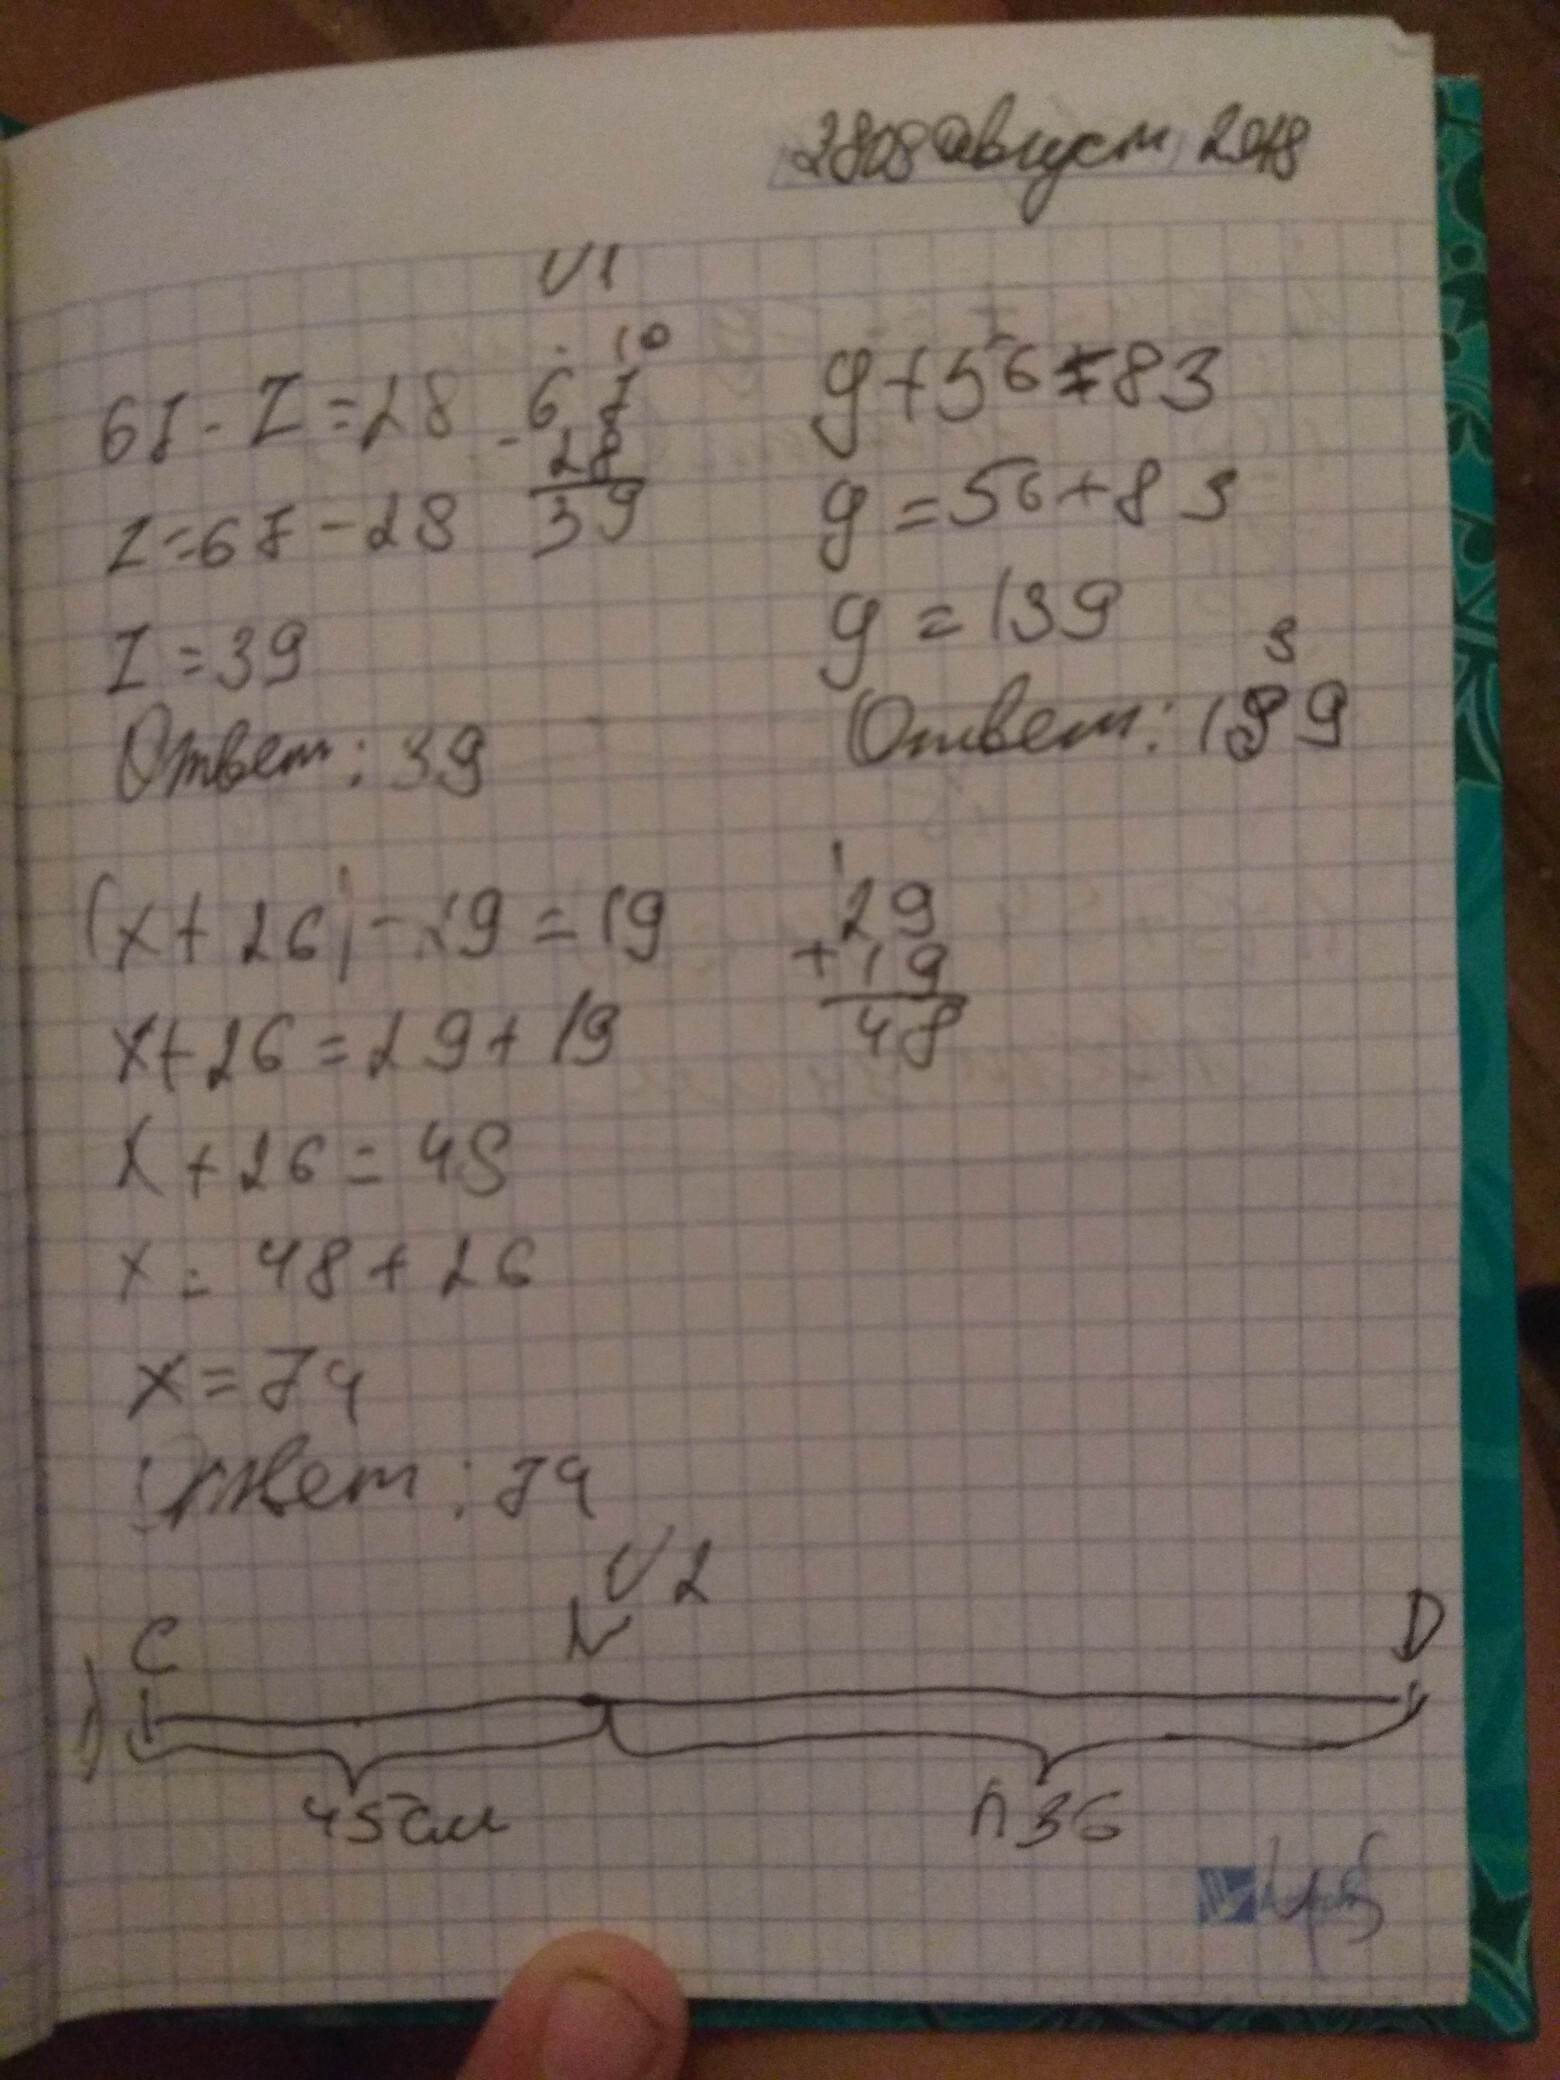 август 2018
№1
67 - Z = 28
Z = 67 - 28
Z = 39
Ответ: 39
10
67
- 28
39
y + 56 = 83
y = 56 + 83
y = 139
3
Ответ: 139
(x + 26) - 29 = 19
x + 26 = 29 + 19
x + 26 = 48
x = 48 + 26
x = 74
Ответ: 74
1
29
+ 19
48
№2
1) C N D
45 см n 36